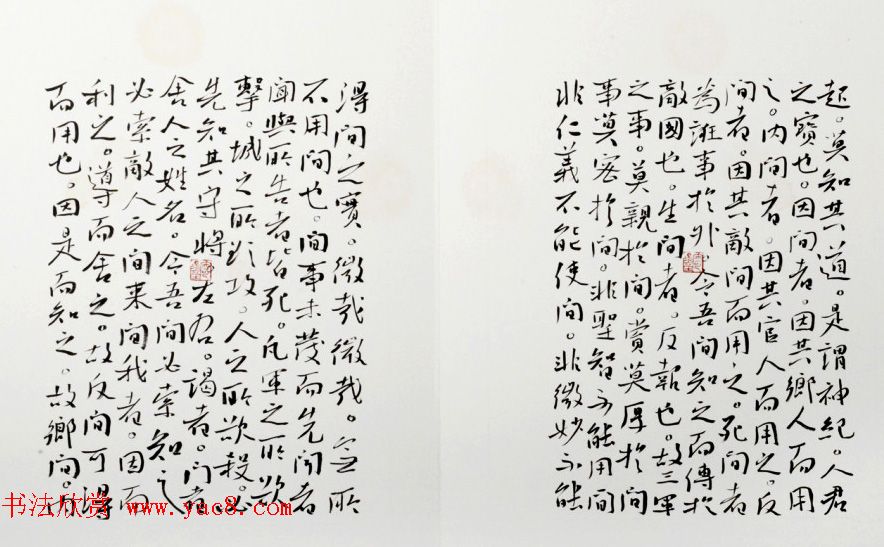 起。莫知其道。是謂神紀。人君
之寶也。因間者。因其鄉人而用
之。内間者。因其官人而用之。反
間者。因其敵間而用之。死間者
為誑事於外。令吾間知之而傳於
敵國也。生間者。反報也。故三軍
之事。莫親於間。賞莫厚於間
事莫密於間。非聖智不能用間
非仁義不能使間。非微妙不能
得間之實。微哉微哉。無所
不用間也。間事未發而先聞者
聞與所告者皆死。凡軍之所欲
擊。城之所欲攻。人之所欲殺。必
先知其守將左右。謁者。門者
舍人之姓名。令吾間必索知之
必索敵人之間来間我者。因而
利之。導而舍之。故反間可得
而用也。因是而知之。故鄉間。内
书法欣赏 www.yac8.com